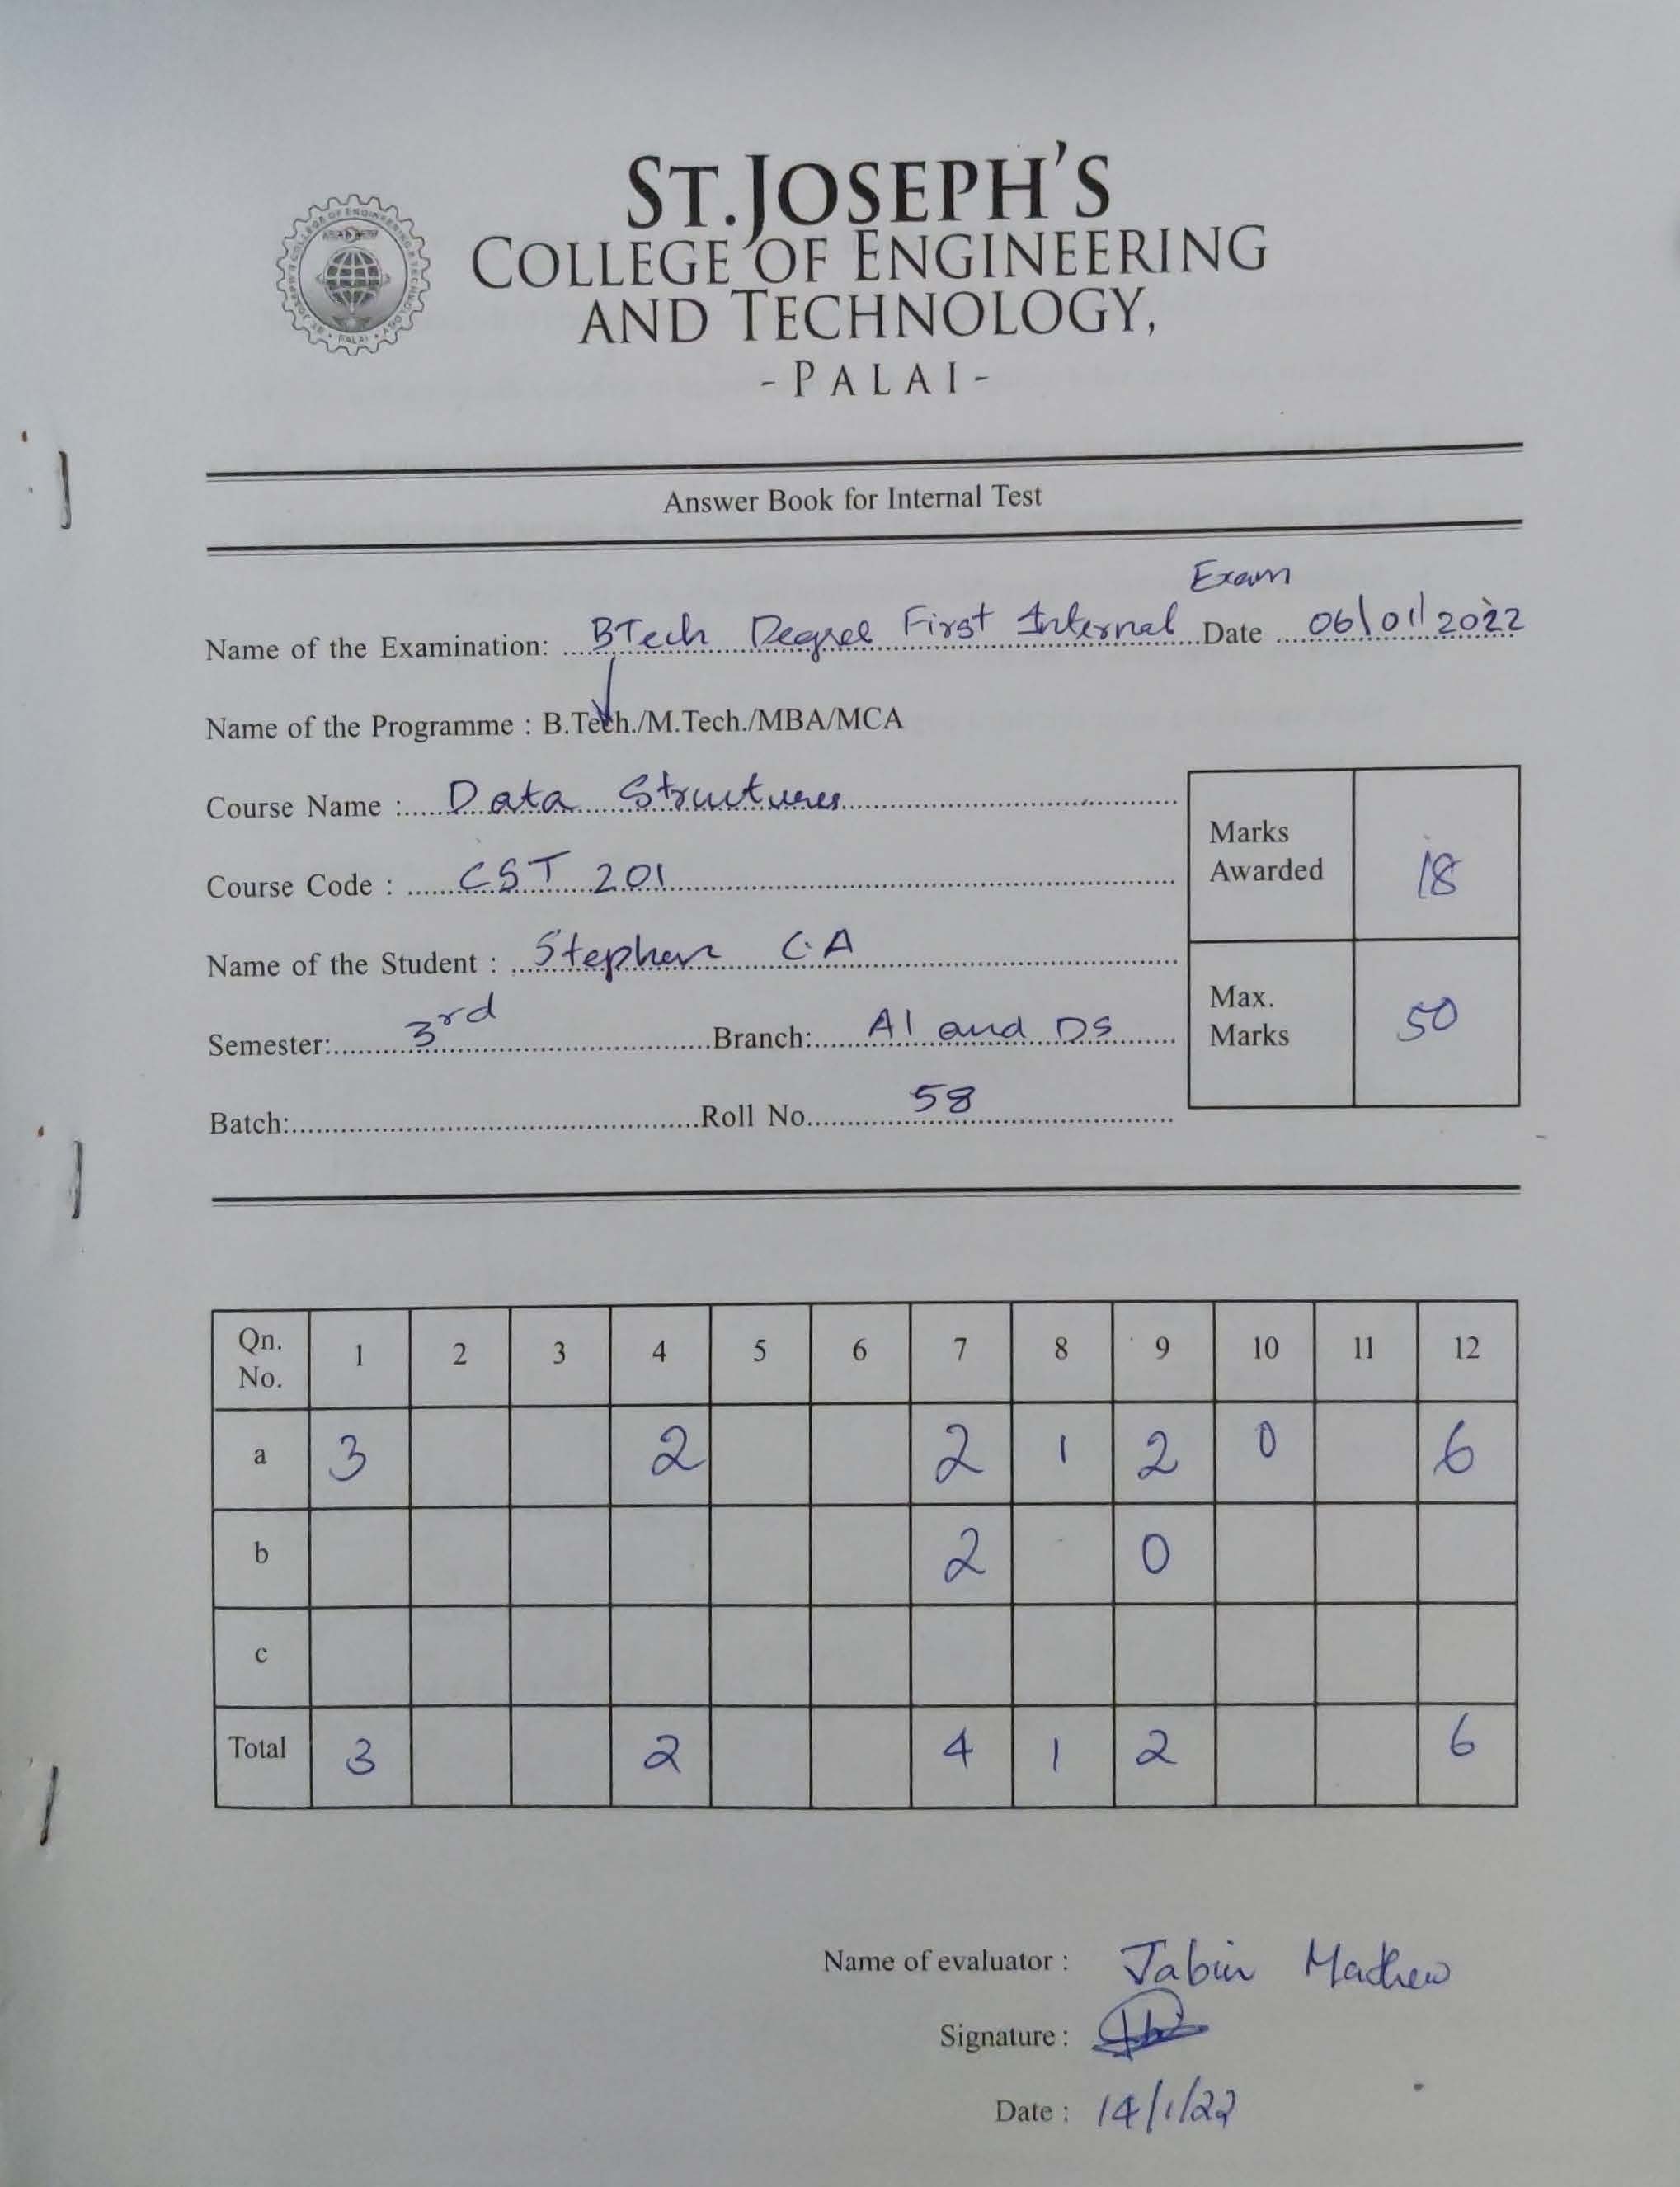 ST.JOSEPH'S
COLLEGE OF ENGINEERING
AND TECHNOLOGY,
-PALAI-
Answer Book for Internal Test
Exam
Name of the Examination: BTech Degree First Internal Date 06/01/2022
Name of the Programme : B.Tech./M.Tech./MBA/MCA
Course Name : Data Structures
Marks Awarded 18
Course Code : CST 201
Name of the Student : Stephen C.A
Max. Marks 50
Semester: 3rd Branch: AI and DS
Batch: Roll No. 58
Qn. No. 1 2 3 4 5 6 7 8 9 10 11 12
a 3 2 2 1 2 0 6
b 2 0
c
Total 3 2 4 1 2 6
Name of evaluator : Jabin Mathew
Signature :
Date : 14/1/22